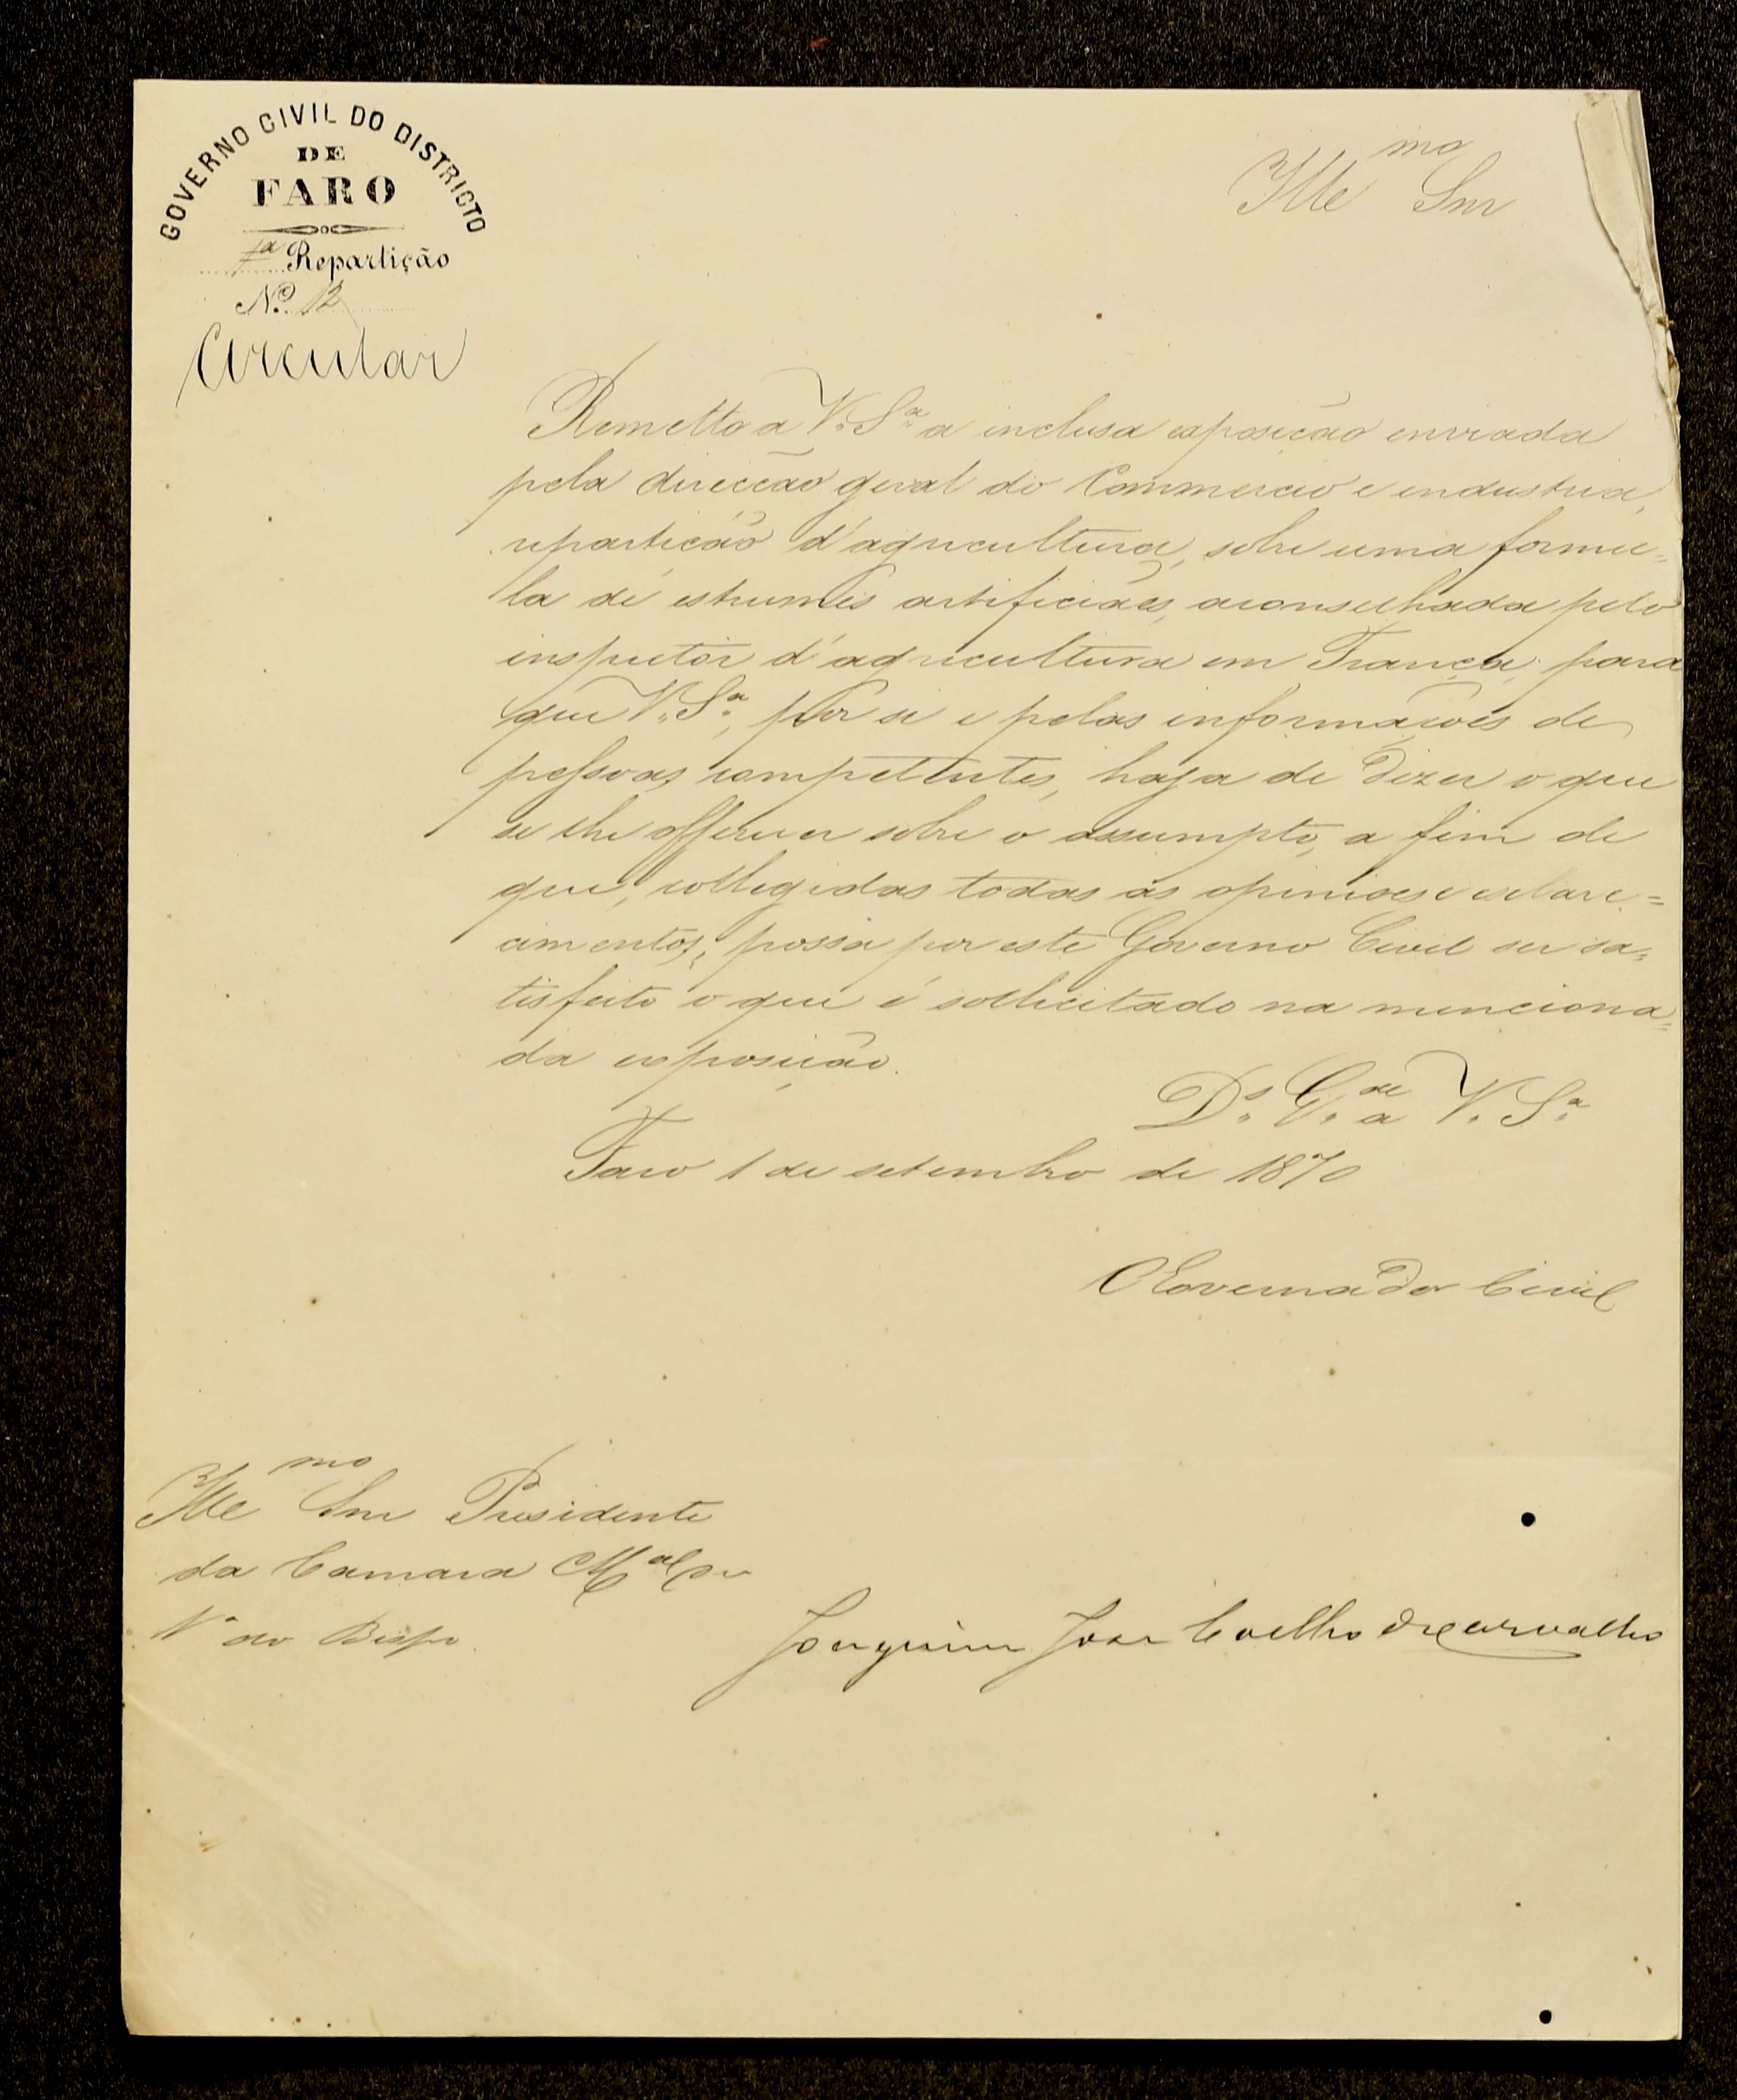 GOVERNO CIVIL DO DISTRICTO
DE
FARO
1ª Repartição
Nº 12
Circular
Illmo Snr
Remetto a V. Sª a inclusa exposição enviada
pela direcção geral do Commercio e industria,
repartição d'agricultura, sobre uma formu=
la de estrumes artificiaes, aconselhada pelo
inspector d'agricultura em França, para
que V. Sª, por si e pelas informações de
pessoas competentes, haja de dizer o que
se lhe offerecer sobre o assumpto, a fim de
que, colligidas todas as opiniões e esclare=
cimentos, possa por este Governo Civil ser sa=
tisfeito o que é sollicitado na menciona=
da exposição.
Ds. G.de a V. Sª
Faro 1 de setembro de 1870
O Governador Civil
Illmo Snr Presidente
da Camara Mal de
Vª do Bispo.
Joaquim José Coelho de Carvalho